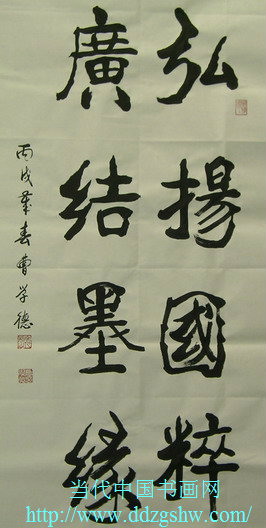 弘揚國粹
廣結墨緣
丙戌年春曹学德
当代中国书画网
http://www.ddzgshw.com/